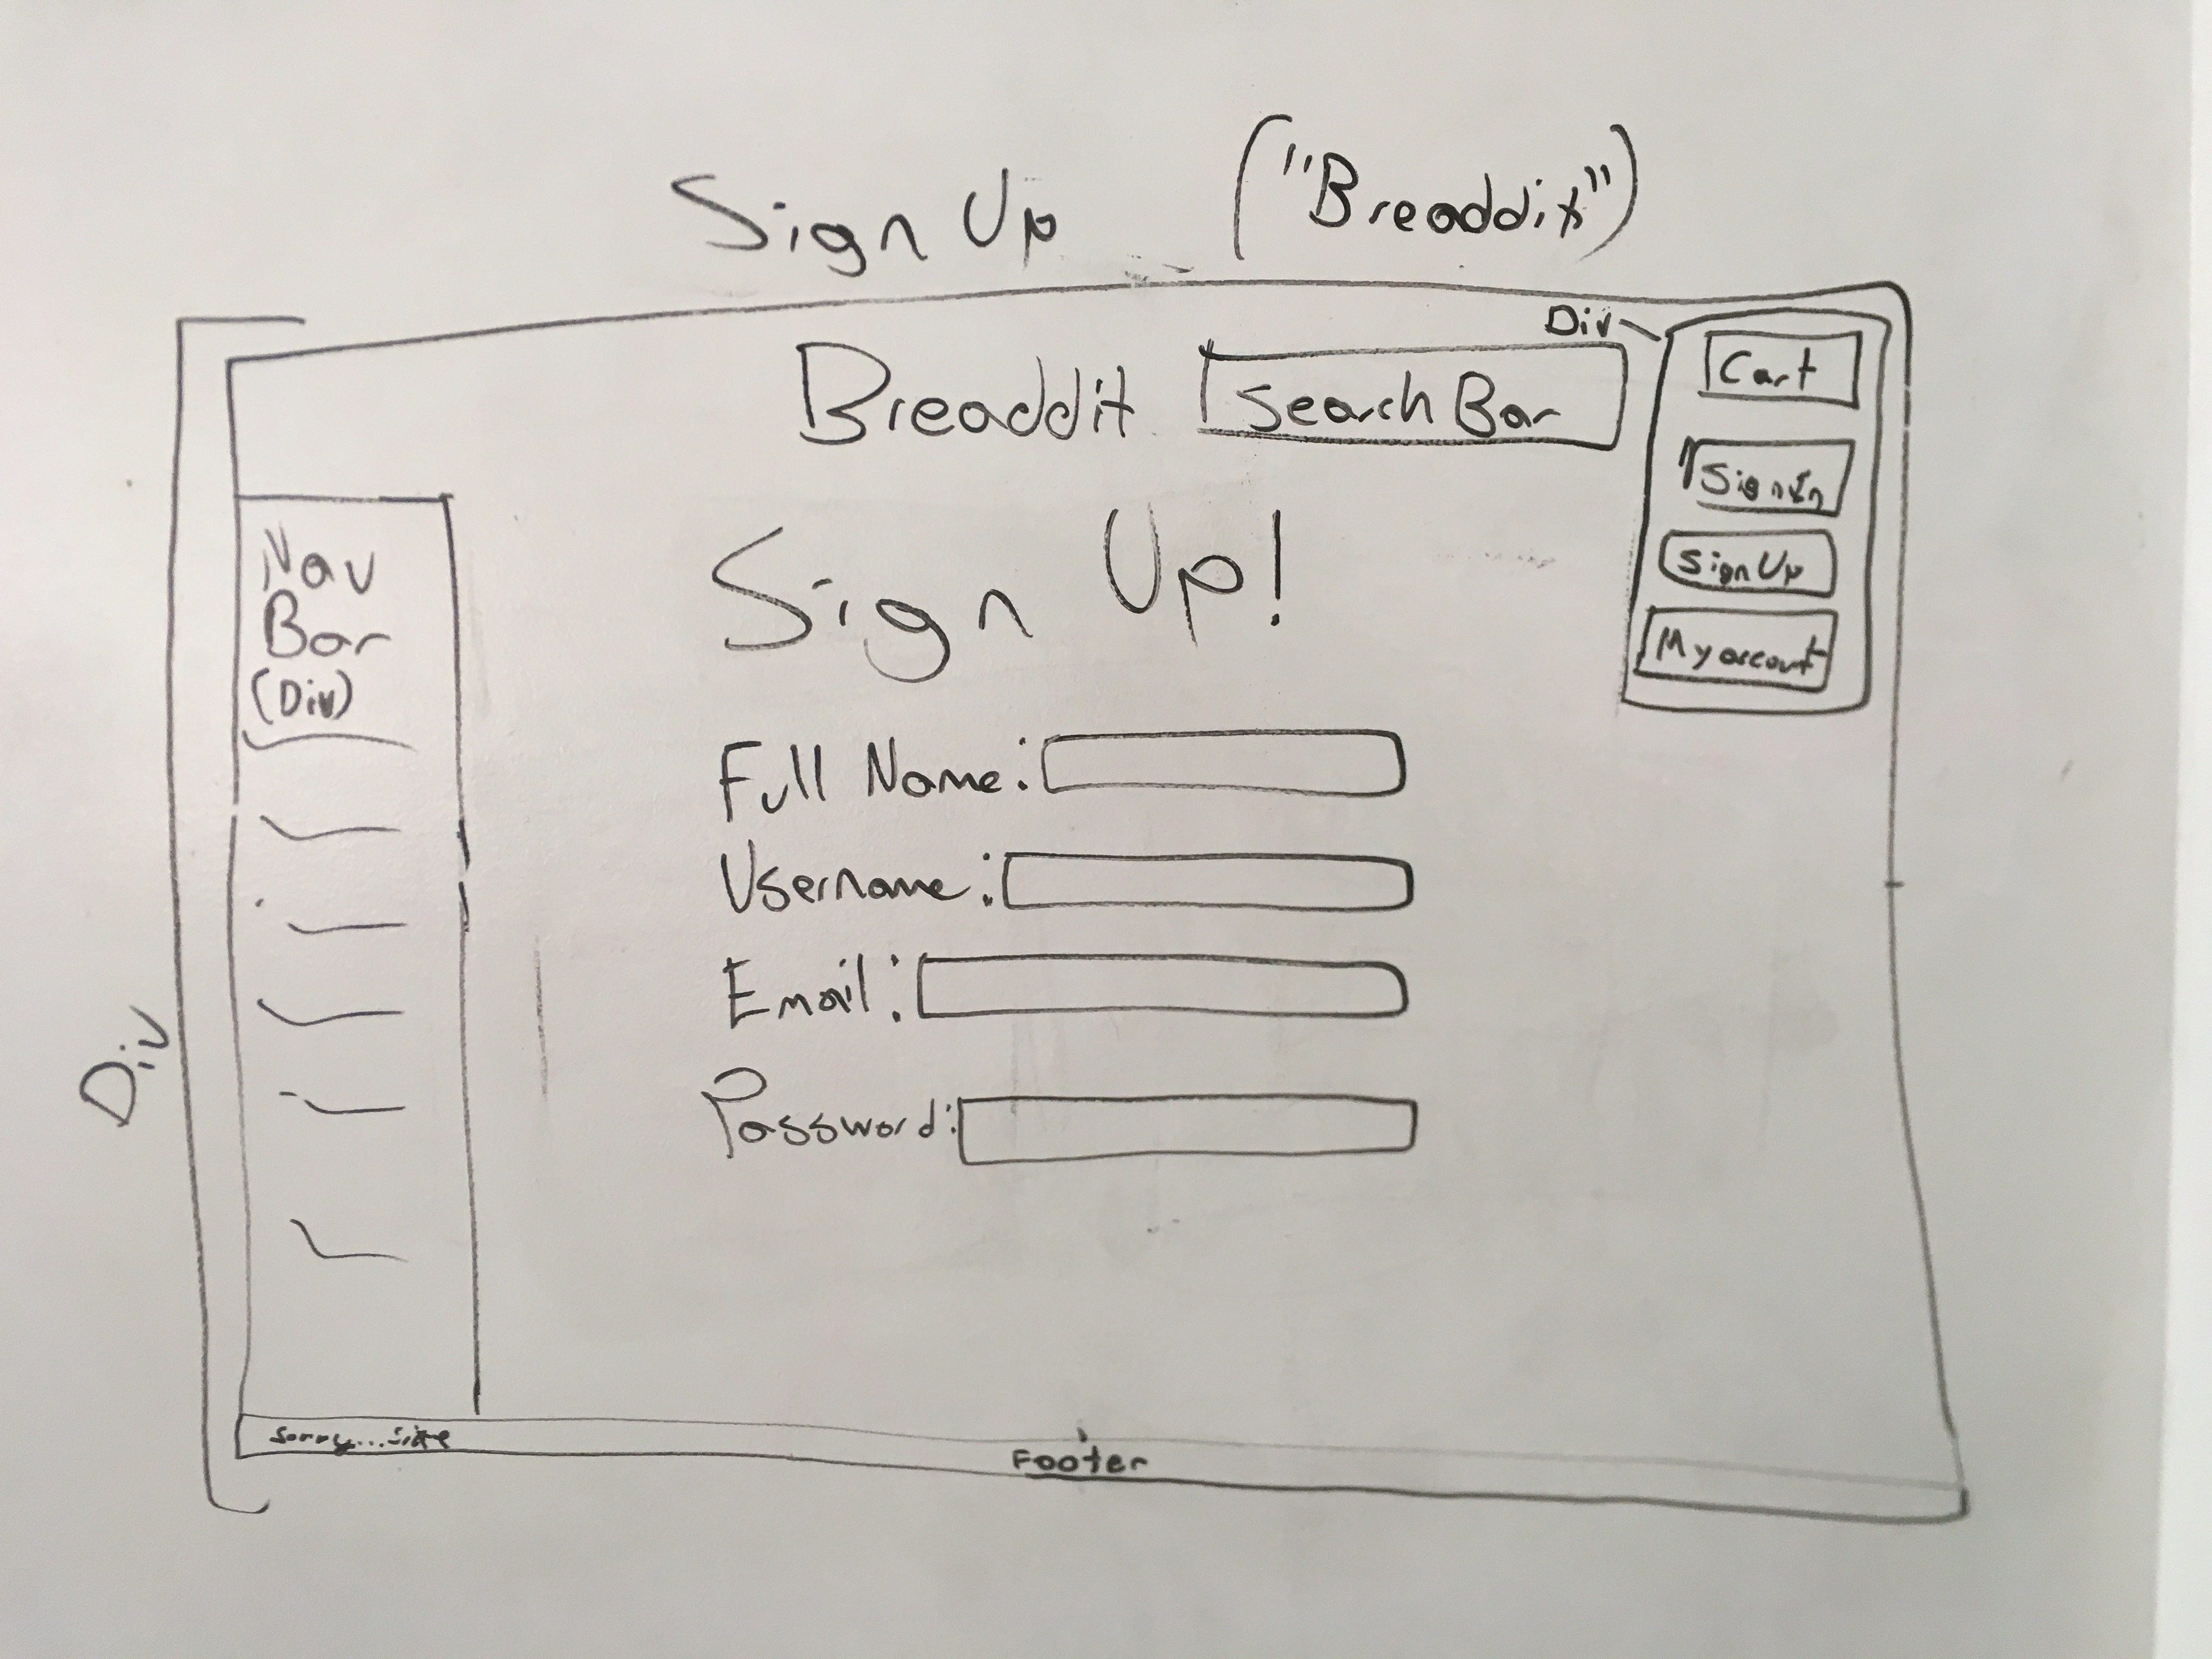 Sign Up ("Breaddit")
Div
Breaddit
Search Bar
Cart
Sign In
Sign Up
My account
Nav
Bar
(Div)
Sign Up!
Full Name:
Username:
Email:
Password:
Div
Sorry...site
Footer